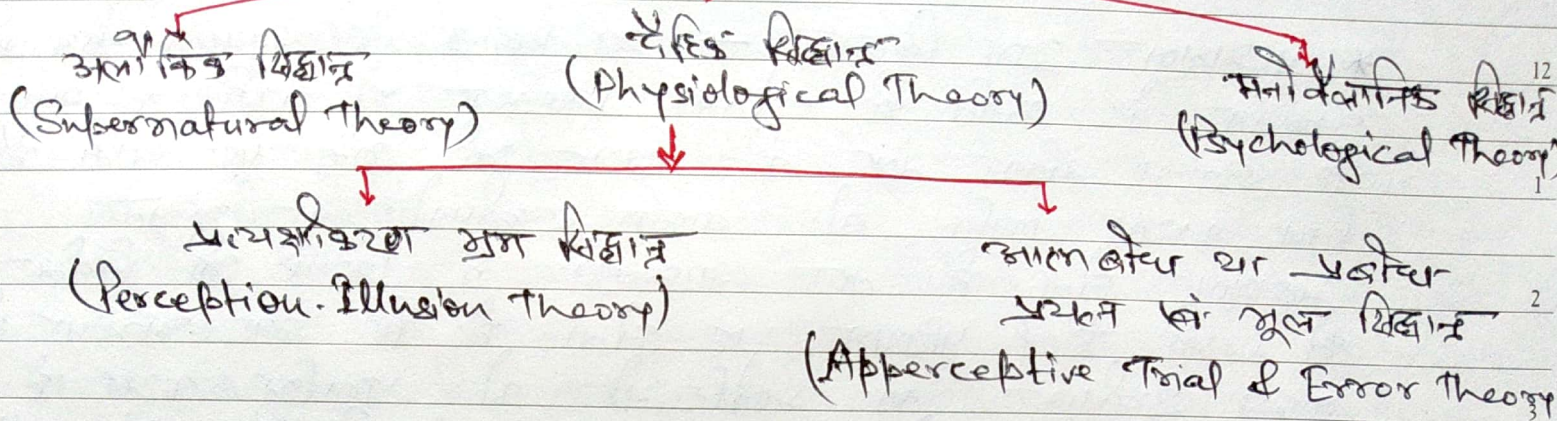 अलौकिक सिद्धान्त
(Supernatural Theory)
दैहिक सिद्धान्त
(Physiological Theory)
मनोवैज्ञानिक सिद्धान्त
(Psychological Theory)
12
1
प्रत्यक्षीकरण भ्रम सिद्धान्त
(Perception-Illusion Theory)
आत्म बोध या प्रबोध
प्रयत्न एवं भूल सिद्धान्त
(Apperceptive Trial & Error Theory
2
3